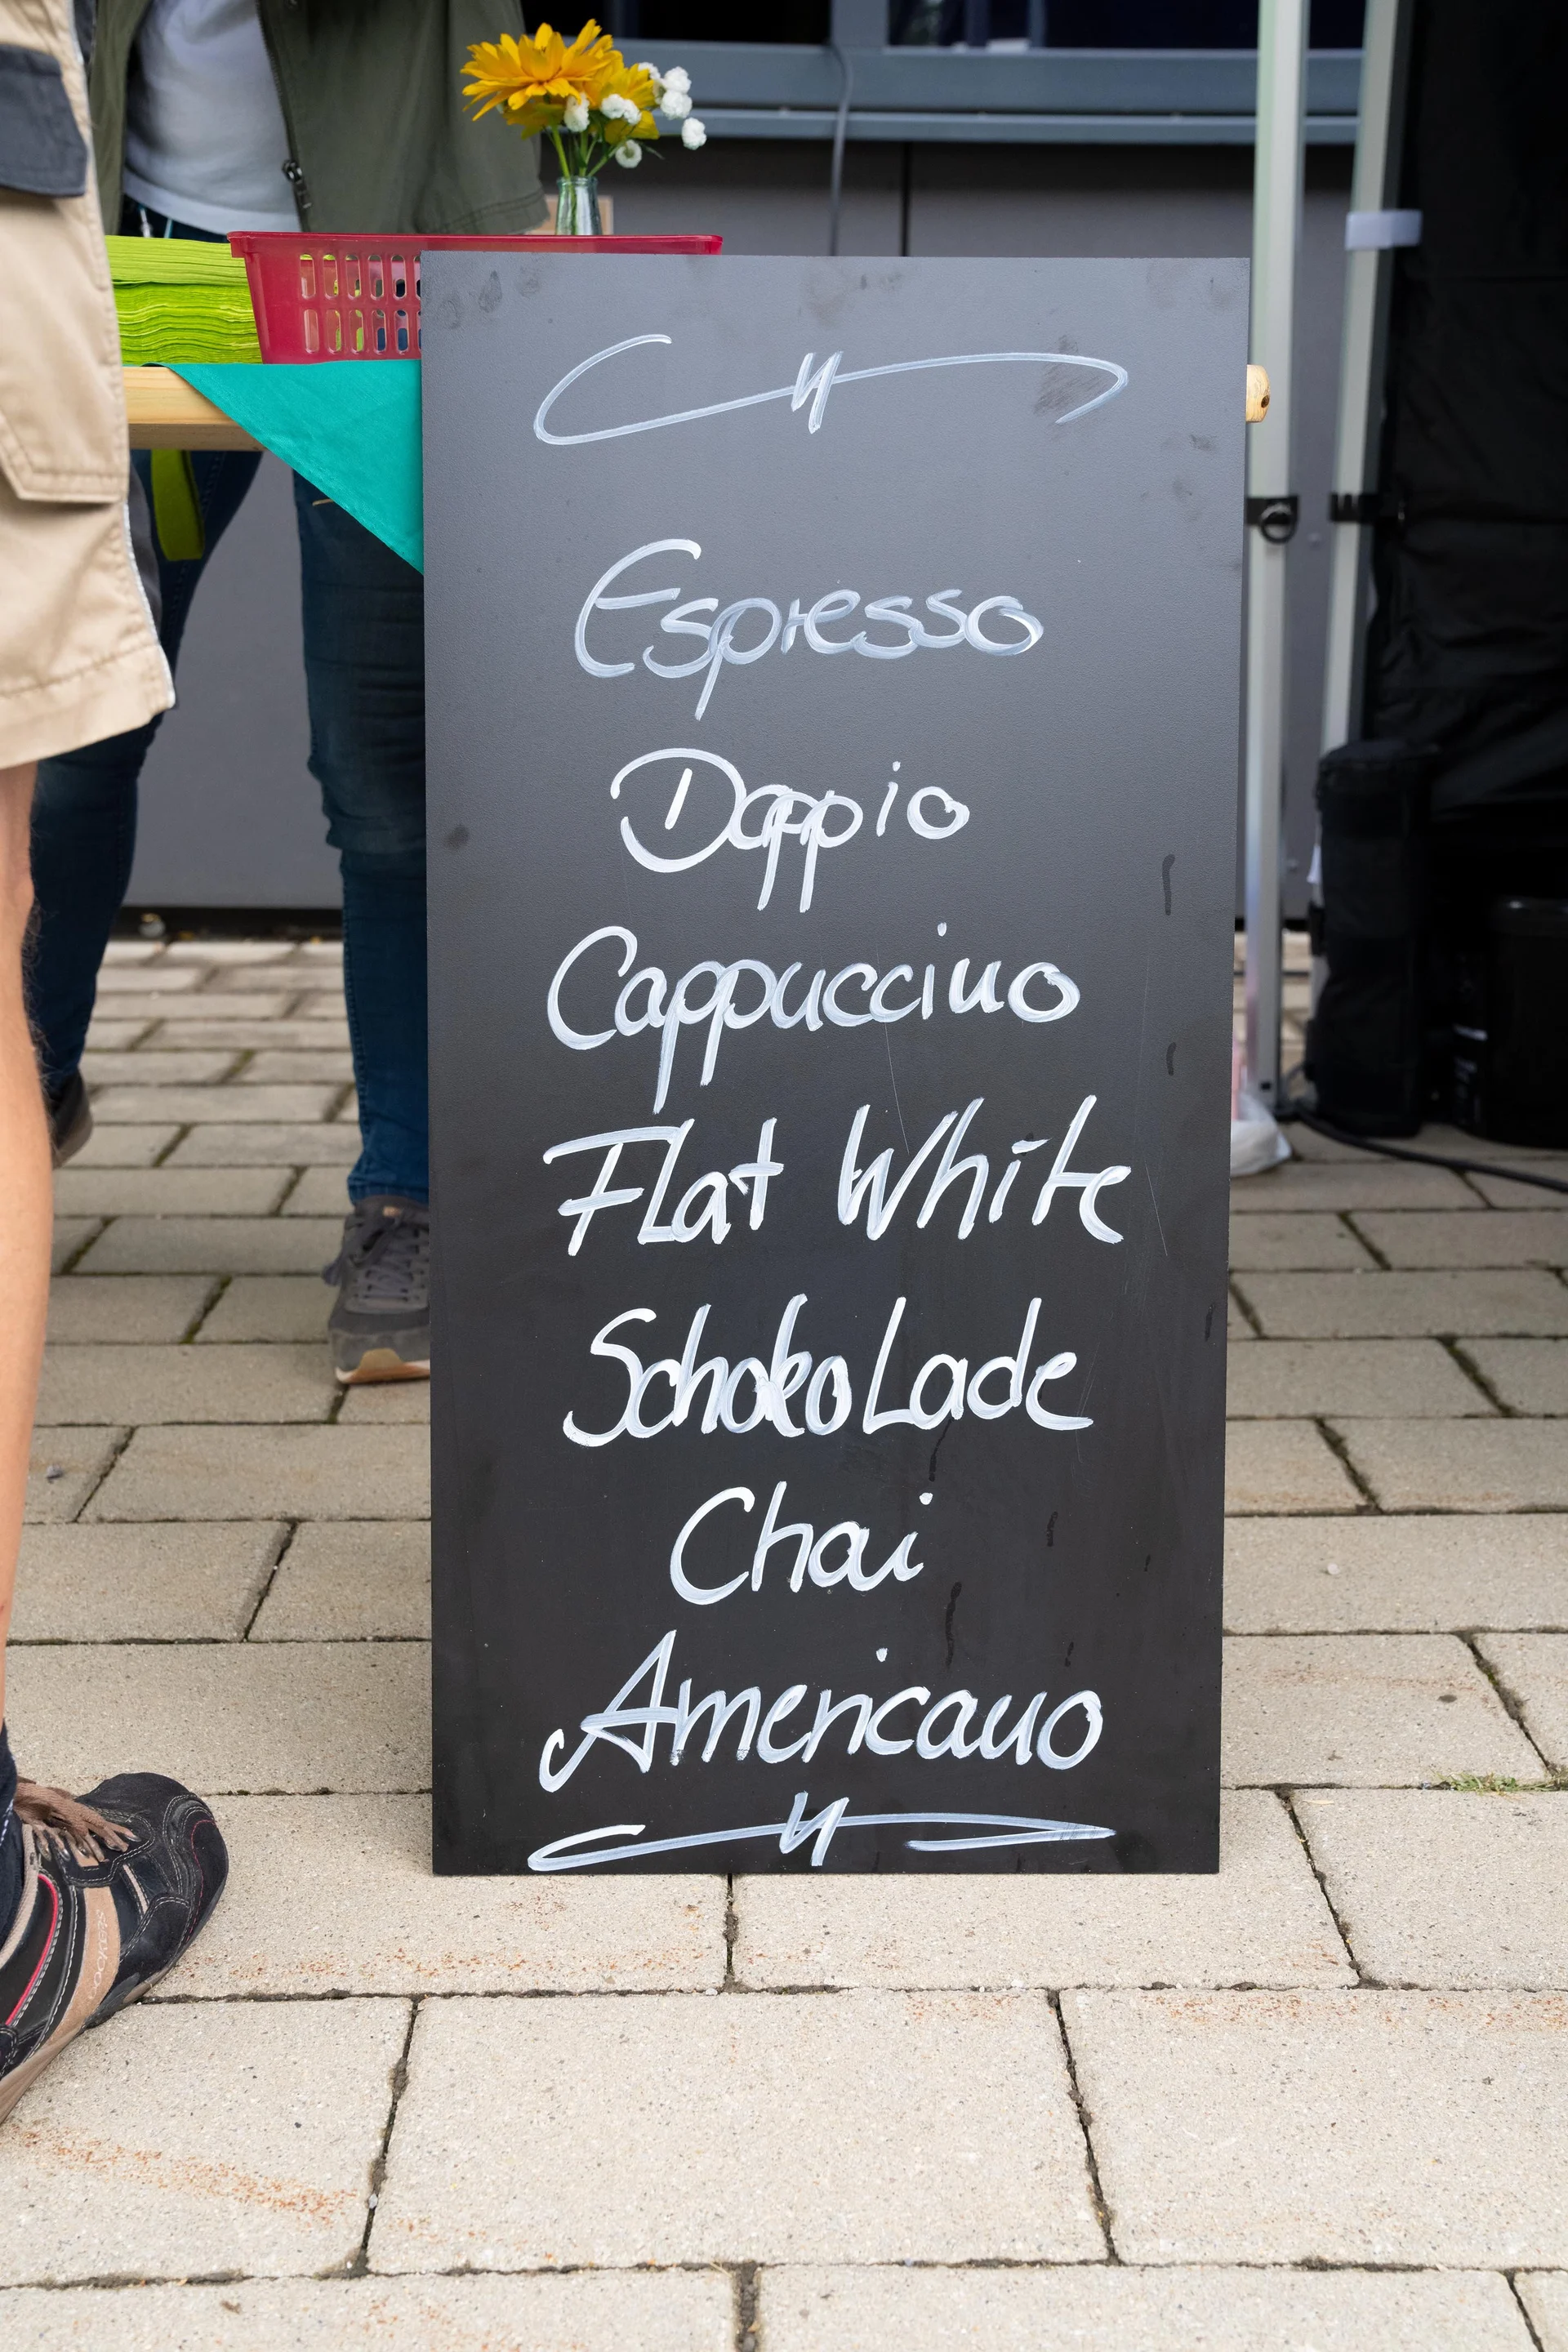 Espresso
Doppio
Cappuccino
Flat White
Schokolade
Chai
Americano